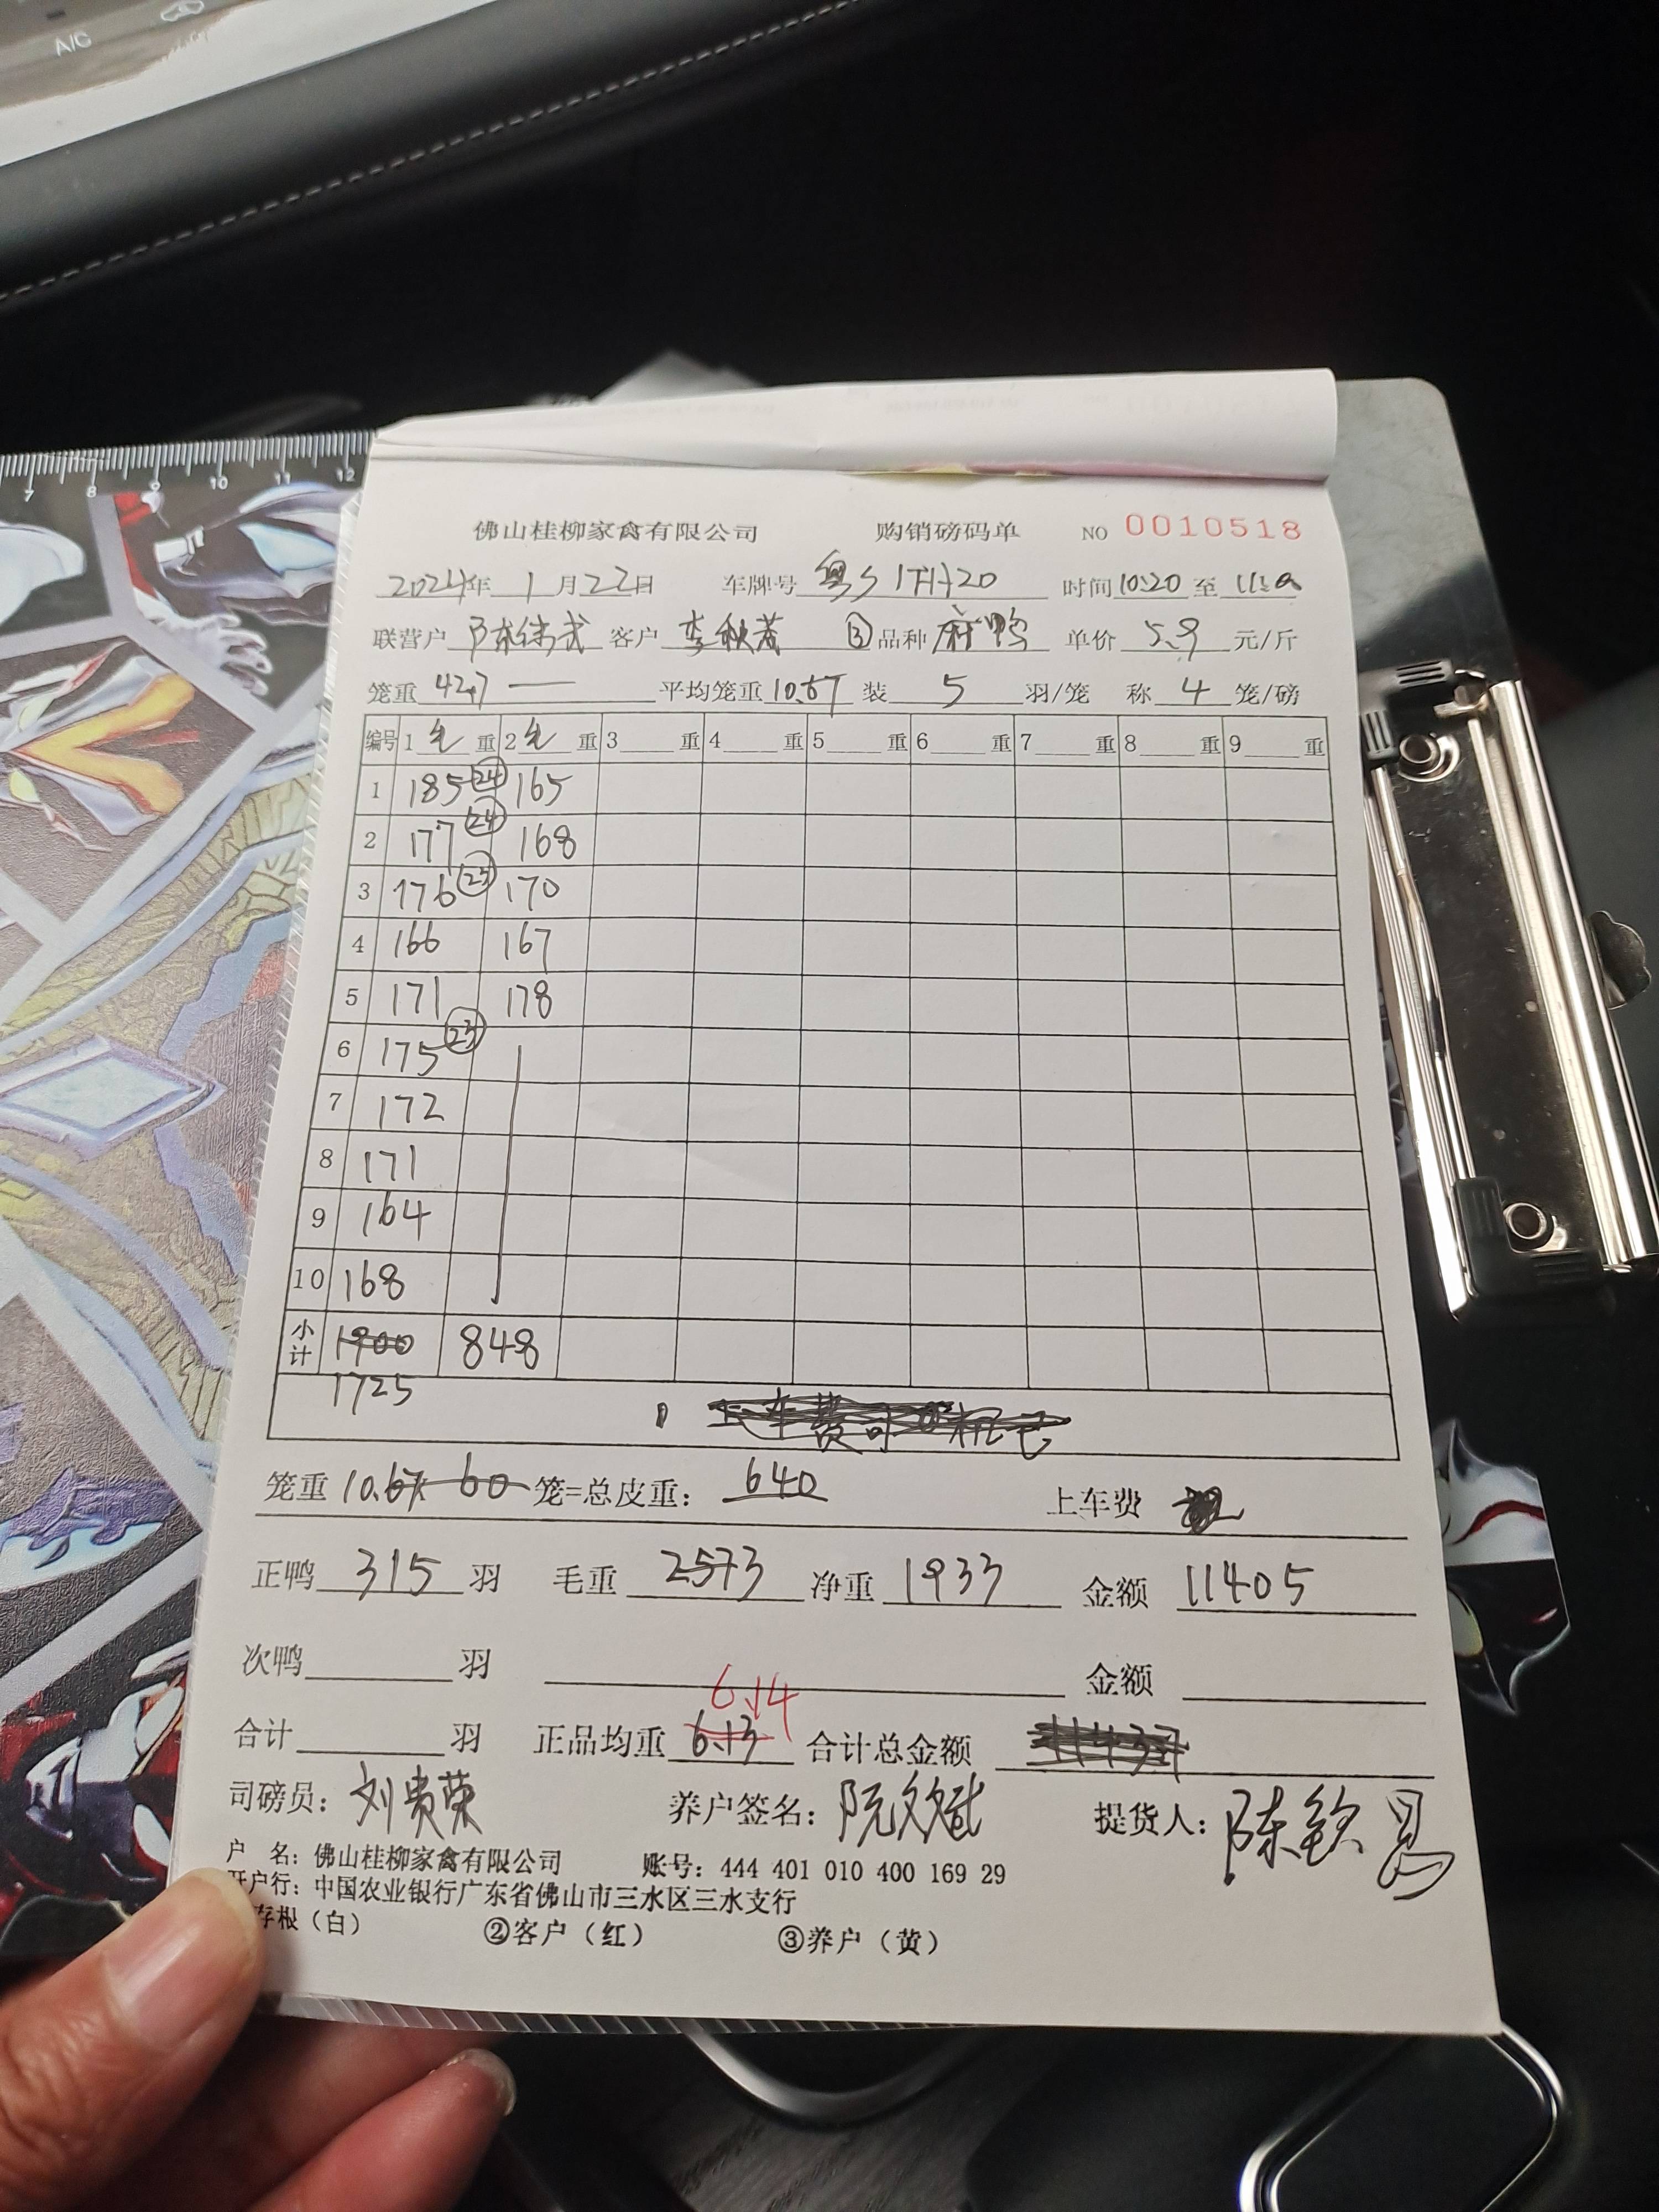 A/C
7 8 9 10 11 12
佛山桂柳家禽有限公司 购销磅码单 NO 0010518
2024年 1月22日 车牌号 粤 17H20 时间 10:20 至
联营户 陈伟武 客户 李秋茂 ③ 品种 麻鸭 单价 5.9 元/斤
笼重 42.7 — 平均笼重 10.67 装 5 羽/笼 称 4 笼/磅
编号 1 毛 重 2 毛 重 3 重 4 重 5 重 6 重 7 重 8 重 9 重
1 185 24 165
2 177 24 168
3 176 168 170
4 166 167
5 171 178
6 175 23
7 172
8 171
9 164
10 168
小计 1900 848
1725
上车费司机已
笼重 10.67x 60 笼=总皮重: 640 上车费
正鸭 315 羽 毛重 2573 净重 1933 金额 11405
次鸭 羽 金额
6.14
合计 羽 正品均重 6.13 合计总金额 11437
司磅员: 刘贵荣 养户签名: 阮 斌 提货人: 陈
户 名: 佛山桂柳家禽有限公司 账号: 444 401 010 400 169 29
开户行: 中国农业银行广东省佛山市三水区三水支行
存根（白） ②客户（红） ③养户（黄）